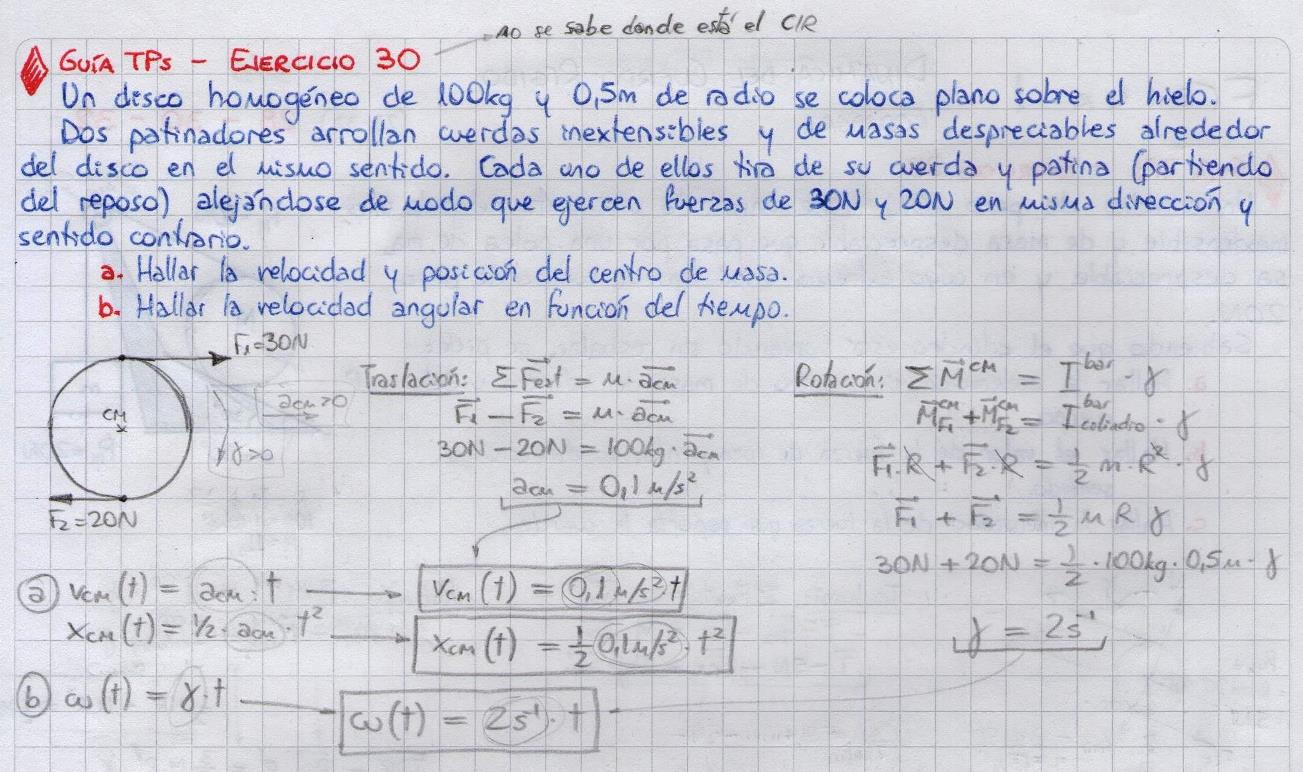 no se sabe donde está el CIR
GUÍA TPs - EJERCICIO 30
Un disco homogéneo de 100kg y 0,5m de radio se coloca plano sobre el hielo.
Dos patinadores arrollan cuerdas inextensibles y de masas despreciables alrededor
del disco en el mismo sentido. Cada uno de ellos tira de su cuerda y patina (partiendo
del reposo) alejándose de modo que ejercen fuerzas de 30N y 20N en misma dirección y
sentido contrario.
a. Hallar la velocidad y posición del centro de masa.
b. Hallar la velocidad angular en función del tiempo.
F₁=30N
CM
acm>0
γ>0
F₂=20N
Traslación: ΣFext = m · acm
F₁ - F₂ = m · acm
30N - 20N = 100kg · acm
acm = 0,1 m/s²
Rotación: ΣM^CM = I^bar · γ
M^CM_F1 + M^CM_F2 = I^bar_cilindro · γ
F₁·R + F₂·R = 1/2 m·R²·γ
F₁ + F₂ = 1/2 m R γ
30N + 20N = 1/2 · 100kg · 0,5m · γ
γ = 2s⁻¹
a) vcm(t) = acm · t
vcm(t) = 0,1 m/s² · t
xcm(t) = 1/2 · acm · t²
xcm(t) = 1/2 0,1 m/s² · t²
b) ω(t) = γ·t
ω(t) = 2s⁻¹ · t